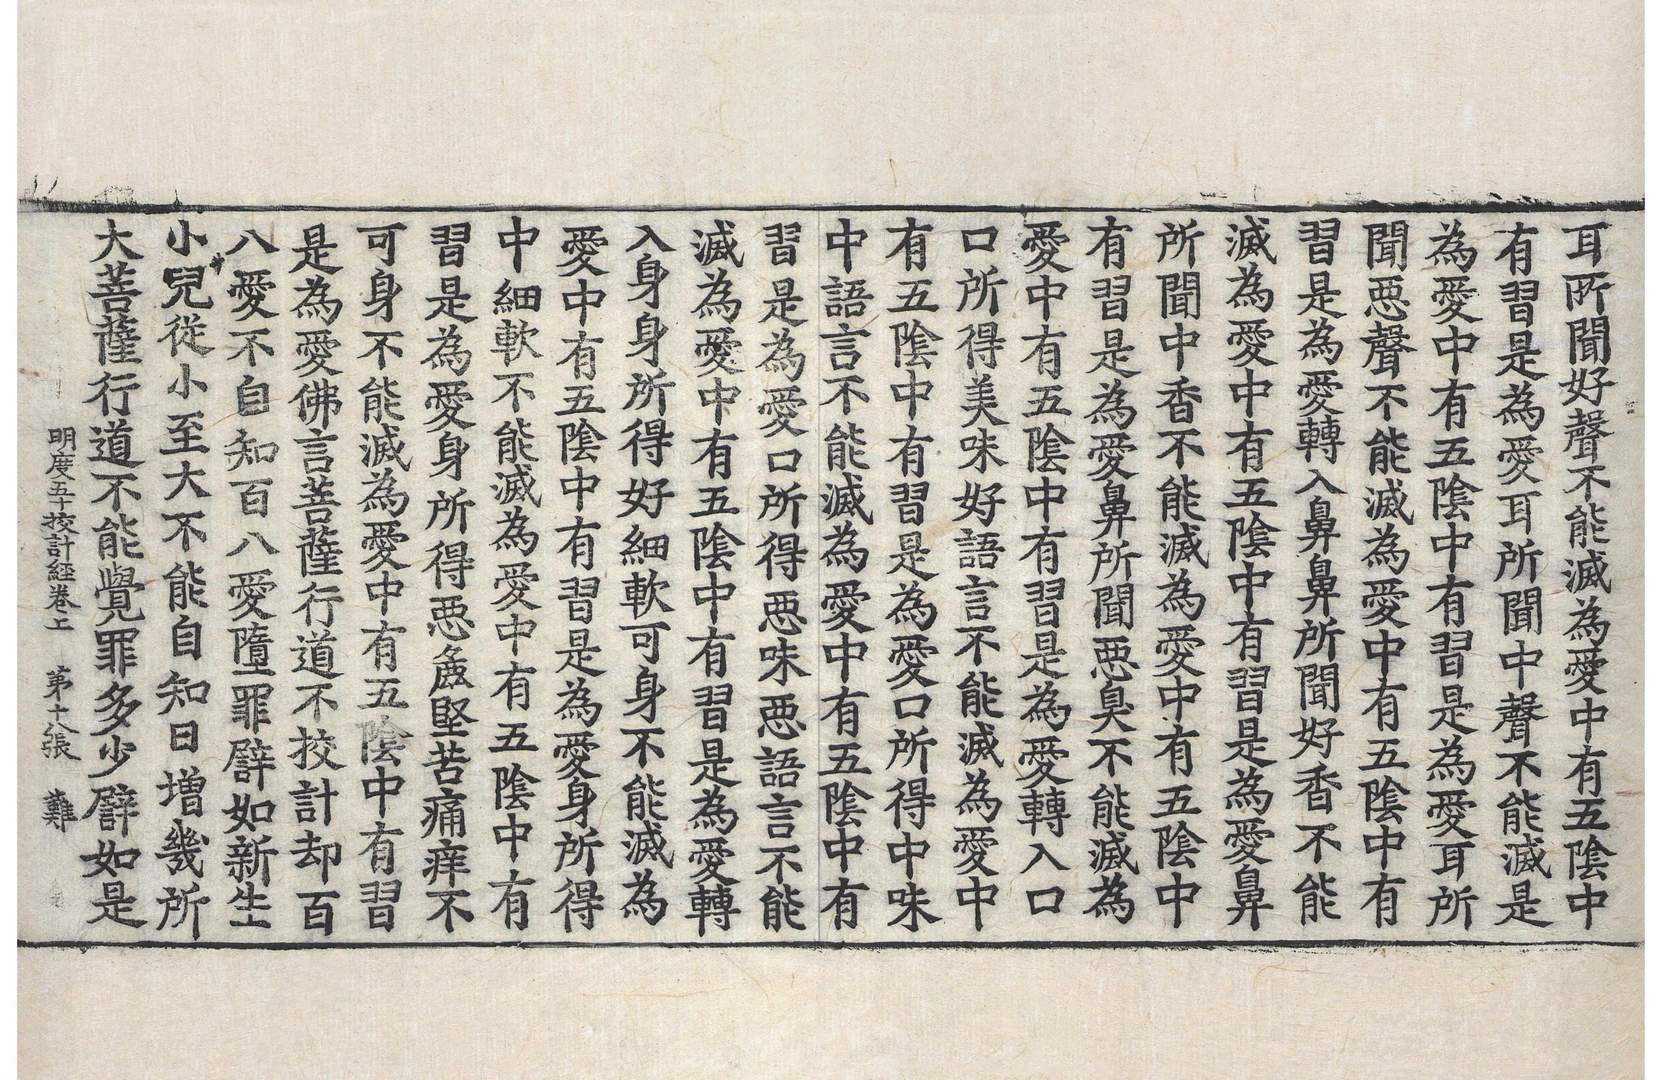 耳所聞好聲不能滅為愛中有五陰中
有習是為愛耳所聞中聲不能滅是
為愛中有五陰中有習是為愛耳所
聞惡聲不能滅為愛中有五陰中有
習是為愛轉入鼻鼻所聞好香不能
滅為愛中有五陰中有習是為愛鼻
所聞中香不能滅為愛中有五陰中
有習是為愛鼻所聞惡臭不能滅為
愛中有五陰中有習是為愛轉入口
口所得美味好語言不能滅為愛中
有五陰中有習是為愛口所得中味
中語言不能滅為愛中有五陰中有
習是為愛口所得惡味惡語言不能
滅為愛中有五陰中有習是為愛轉
入身身所得好細軟可身不能滅為
愛中有五陰中有習是為愛身所得
中細軟不能滅為愛中有五陰中有
習是為愛身所得惡麁堅苦痛痒不
可身不能滅為愛中有五陰中有習
是為愛佛言菩薩行道不挍計却百
八愛不自知百八愛墮罪譬如新生
小兒從小至大不能自知日增幾所
大菩薩行道不能覺罪多少譬如是
明度五十挍計經卷上 第十八張 難